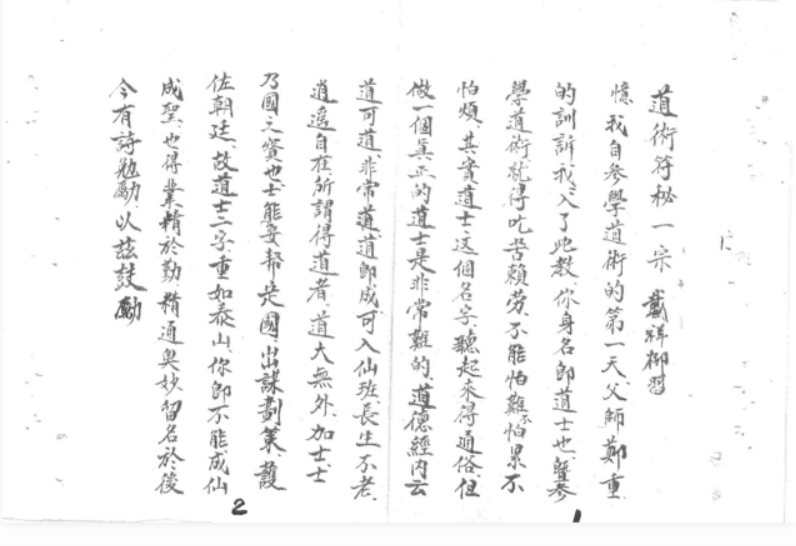 道術符秘一宗 戴祥柳習
憶我自參學道術的第一天父師鄭重
的訓訴我、入了此教、你身名即道士也、既參
學道術就得吃苦賴劳、不能怕難、不怕累不
怕煩、其實道士这個名字、聽起來得通俗、但
做一個真正的道士是非常難的、道德經内云
道可道、非常道、道即成可入仙班、長生不老、
逍遥自在、所謂得道者、道大無外、加士、士
乃國之寳也、士能安帮定國、出謀劃策、護
佐朝廷、故道士二字重如泰山、你即不能成仙
成聖、也得業精於勤、精通奥妙、留名於後
今有詩勉勵以兹鼓勵
1
2